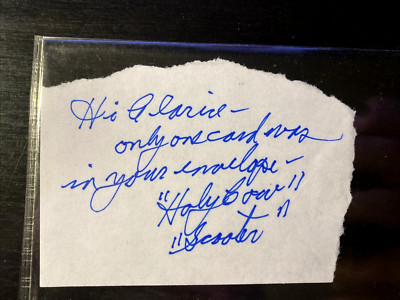 Hi Clarice-
only one card was
in your envelope-
"Holy Cow"
"Scooter"